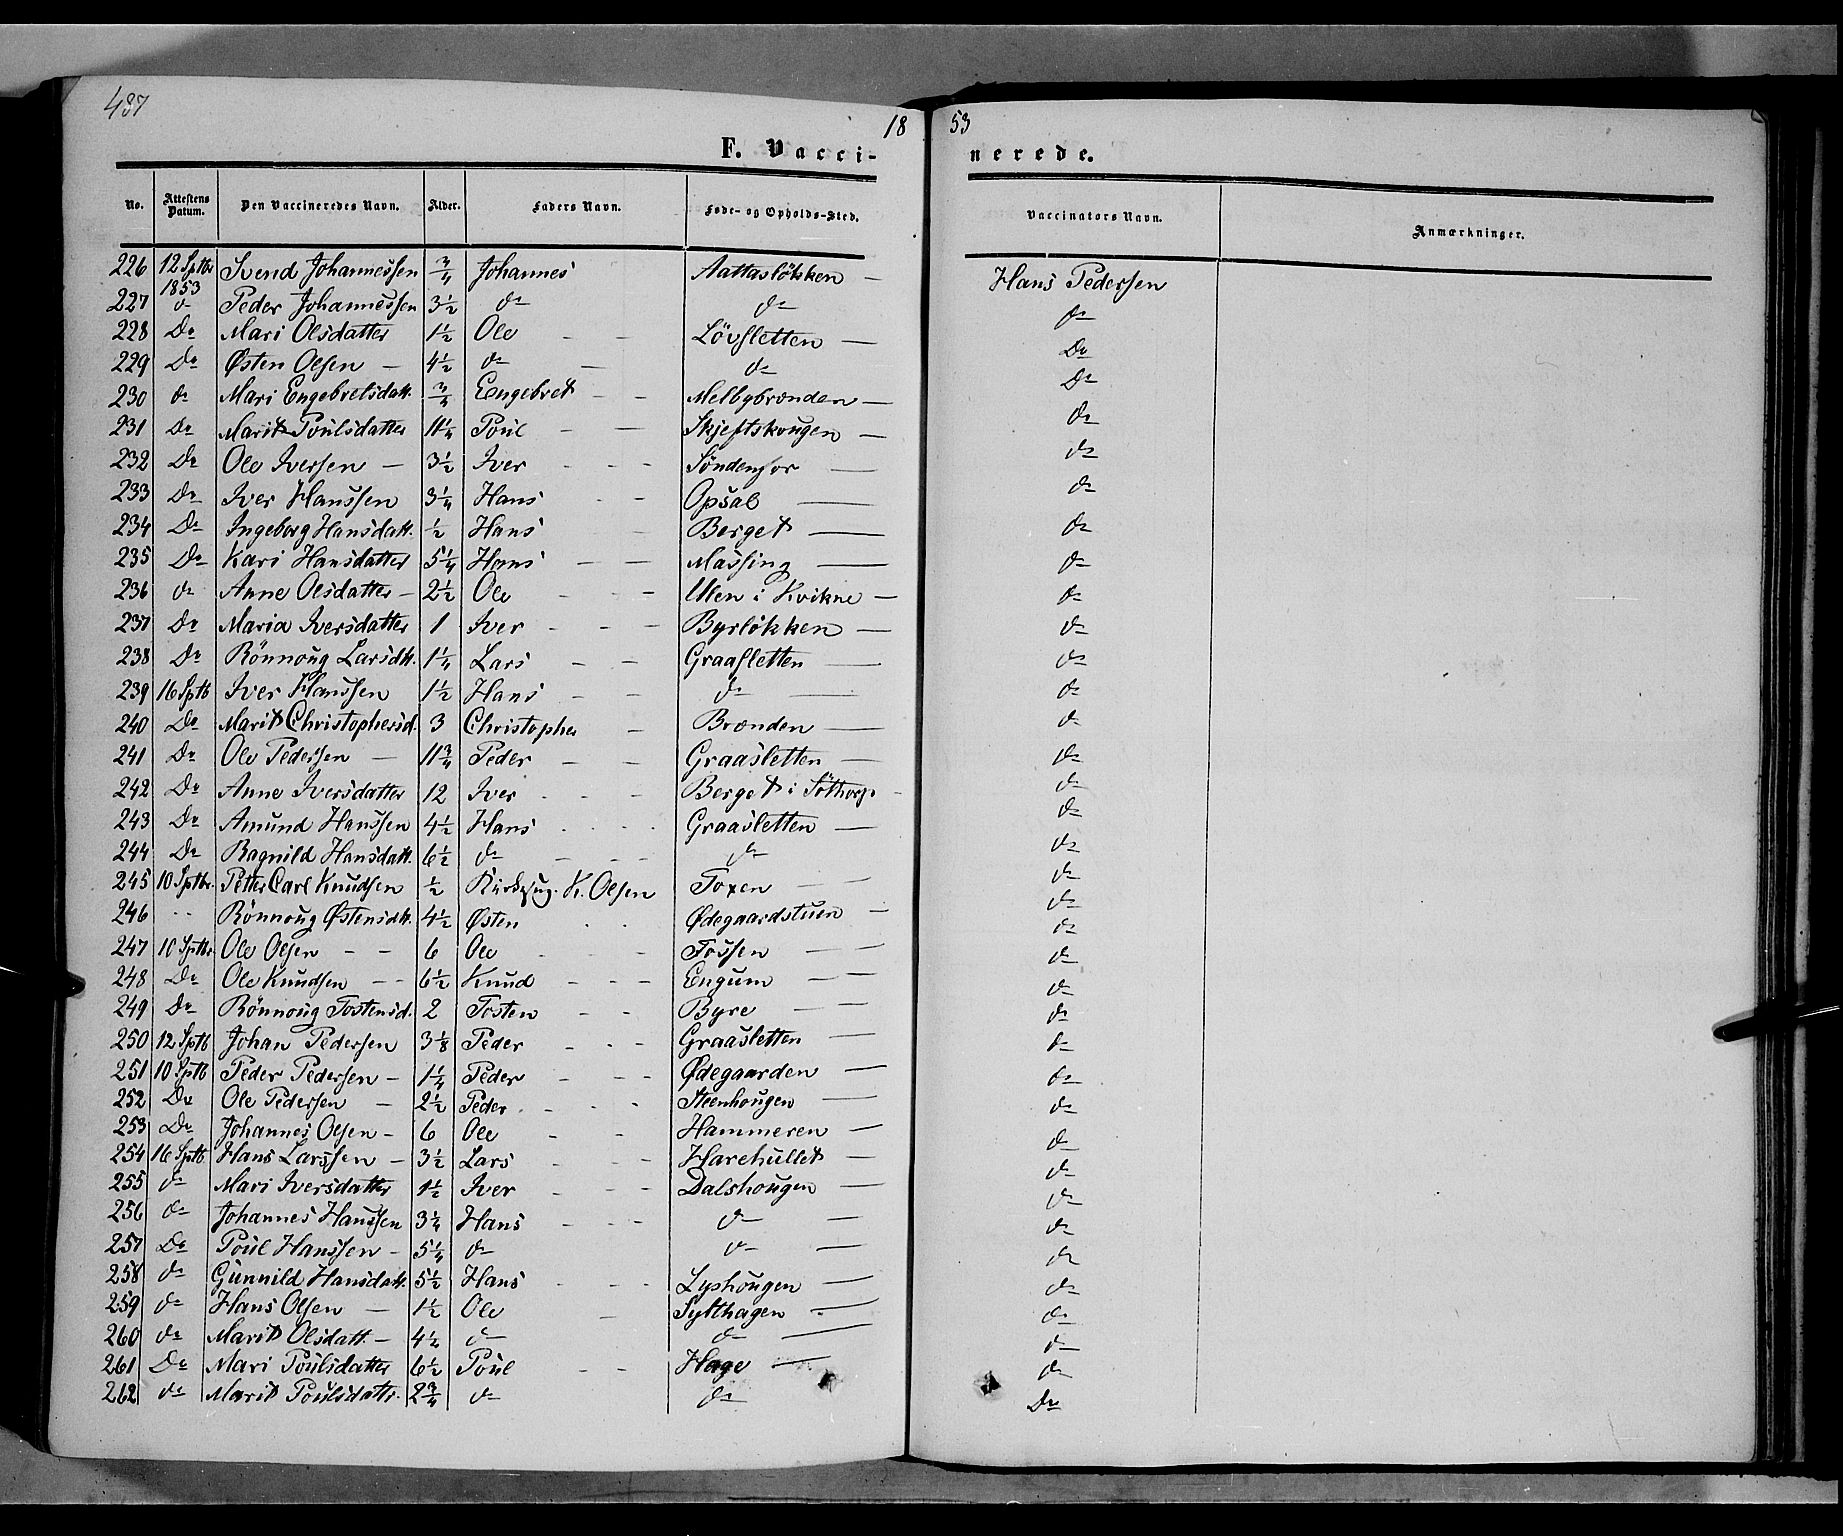 437
18 53
F. Vaccinerede.
No. Attestens Datum. Den Vaccineredes Navn. Alder. Faders Navn. Føde- og Opholds-Sted. Vaccinators Navn. Anmærkninger.
226 12 Sptbr 1853 Svend Johannessen 3/4 Johannes Aattasløkken — Hans Pedersen
227 do Peder Johannessen 3 1/2 do do do
228 Do Mari Olsdatter 1 1/2 Ole - - Lövsletten — Do
229 Do Østen Olsen — 4 1/2 do — do Do
230 do Mari Engebretsdatt. 3/4 Engebret - - Melbybrænden — do
231 Do Marit Poulsdatter 11 1/4 Poul - — Skjeftskougen — do
232 Do Ole Iversen — 3 1/2 Iver - - - Söndenfor — do
233 Do Iver Hanssen 3 1/4 Hans - - Opsal — do
234 Do Ingeborg Hansdatt. 1/2 Hans - Berget — do
235 Do Kari Hansdatter 5 1/4 Hans - — Massing — do
236 do Anne Olsdatter - 2 1/2 Ole - - - Ulen i Kvikne — do
237 Do Maria Iversdatter 1 Iver - - - Byrløkken — do
238 Do Rönnoug Larsdtt. 1 1/4 Lars - - Graasletten — do
239 16 Sptb Iver Hanssen 1 1/2 Hans - - do — do
240 Do Marit Christophersd. 3 Christopher - Brænden — do
241 Do Ole Pedersen — 11 3/4 Peder - - Graasletten — do
242 Do Anne Iversdatter 12 Iver - - - Berget i Söthorp - do
243 Do Amund Hanssen 4 1/2 Hans - - - Graasletten — do
244 Do Ragnild Hansdatt. 6 1/2 do - - - do do
245 10 Sptbr. Petter Carl Knudsen 1/2 Kirkesng. K. Olsen Toxen - — do
246 - - Rönnoug Østensdtt. 4 1/2 Østen - - Ødegaardstuen — do
247 10 Sptbr Ole Olsen - - 6 Ole - - Fossen — do
248 Do Ole Knudsen - - 6 1/2 Knud - - - Engum - — do
249 Do Rönnoug Tostensd. 2 Tosten - - Byre — do
250 12 Sptb Johan Pedersen 3 1/8 Peder - - - Graasletten — do
251 10 Sptb Peder Pedersen - 1 1/4 Peder - - - Ødegaarden — do
252 Do Ole Pedersen — 2 1/2 Peder - - - Steenhougen — do
253 Do Johannes Olsen - 6 Ole - - Hammeren — do
254 16 Sptb Hans Larssen - 3 1/2 Lars - - - Harehullet — do
255 do Mari Iversdatter 1 1/2 Iver - - - Dalshougen — do
256 do Johannes Hanssen 3 1/4 Hans - - - do — do
257 Do Poul Hanssen - 5 1/4 do do — do
258 do Gunnild Hansdatt. 5 1/2 Hans - - - Lyshougen — do
259 do Hans Olsen — 1 1/2 Ole - Sylthagen — do
260 do Marit Olsdatt. - 4 1/2 do do — do
261 Do Mari Poulsdatter 6 1/2 Poul - - Hage — do
262 do Marit Poulsdattr. 2 3/4 do do Do